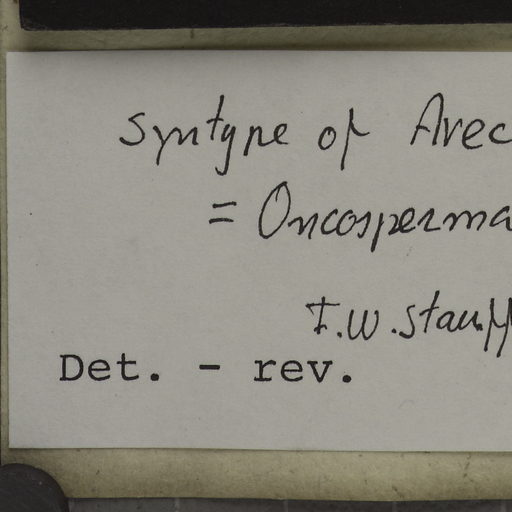 Syntype of Arec
= Oncosperma
F.W. Stauff
Det. - rev.